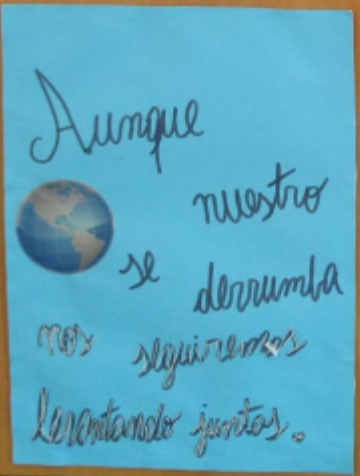 Aunque
nuestro
se derrumba
nos seguiremos
levantando juntas.